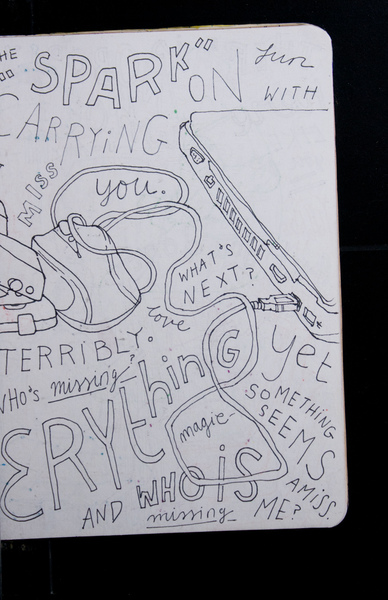 HE
"SPARK"
ON
fun
WITH
CARRYiNG
MISS
you.
WHAT'S
NEXT?
love
TERRIBLY.
WHO'S missing?
yet
ERYthinG
magic-
SOMETHING
SEEMS
AMISS.
WHO iS
AND missing ME?